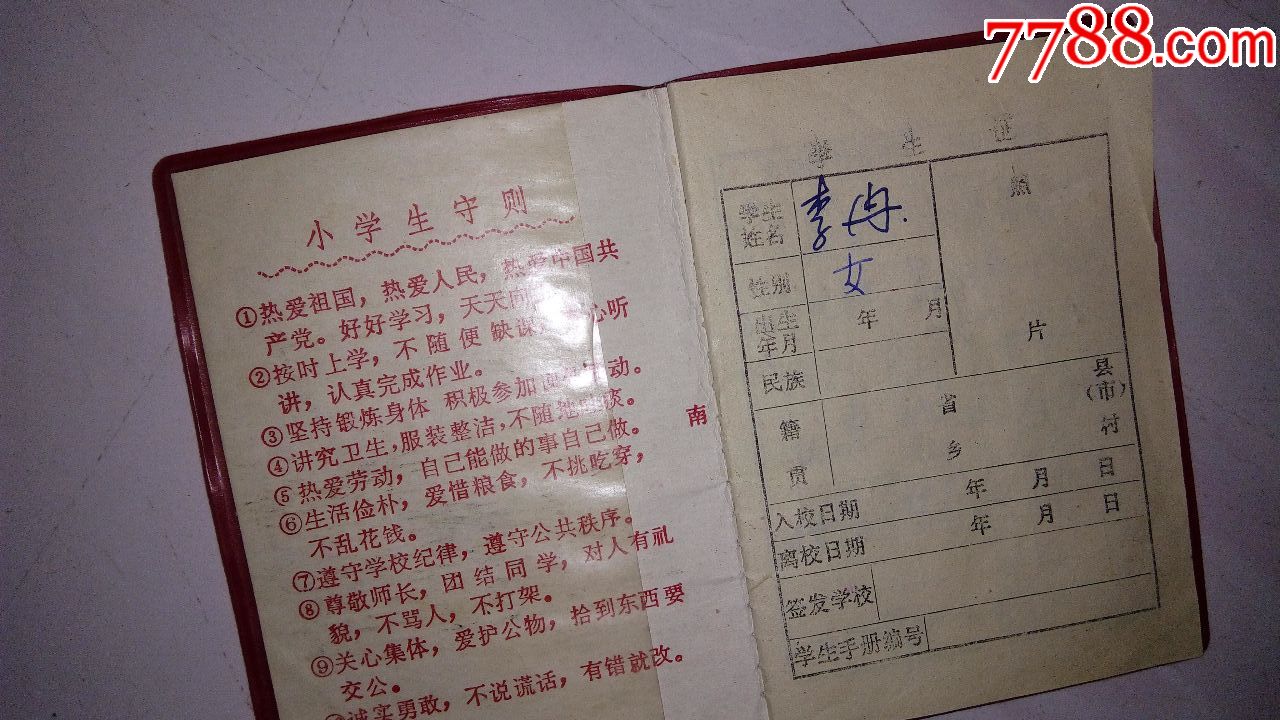 7788.com
小学生守则
①热爱祖国，热爱人民，热爱中国共
产党。好好学习，天天向
②按时上学，不随便缺课，心听
讲，认真完成作业。
③坚持锻炼身体 积极参加动。
④讲究卫生，服装整洁，不随地痰。
⑤热爱劳动，自己能做的事自己做。
⑥生活俭朴，爱惜粮食，不挑吃穿，
不乱花钱。
⑦遵守学校纪律，遵守公共秩序。
⑧尊敬师长，团结同学，对人有礼
貌，不骂人，不打架。
⑨关心集体，爱护公物，拾到东西要
交公。
诚实勇敢，不说谎话，有错就改。
南
学生证
学生姓名 李
照片
性别 女
出生年月 年 月
民族
籍贯 省 县（市）
乡 村
入校日期 年 月 日
离校日期 年 月 日
签发学校
学生手册编号